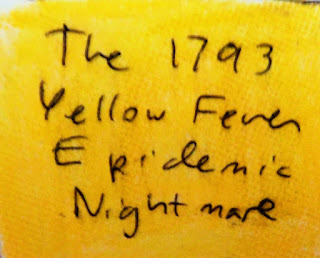 The 1793
Yellow Fever
Epidemic
Nightmare